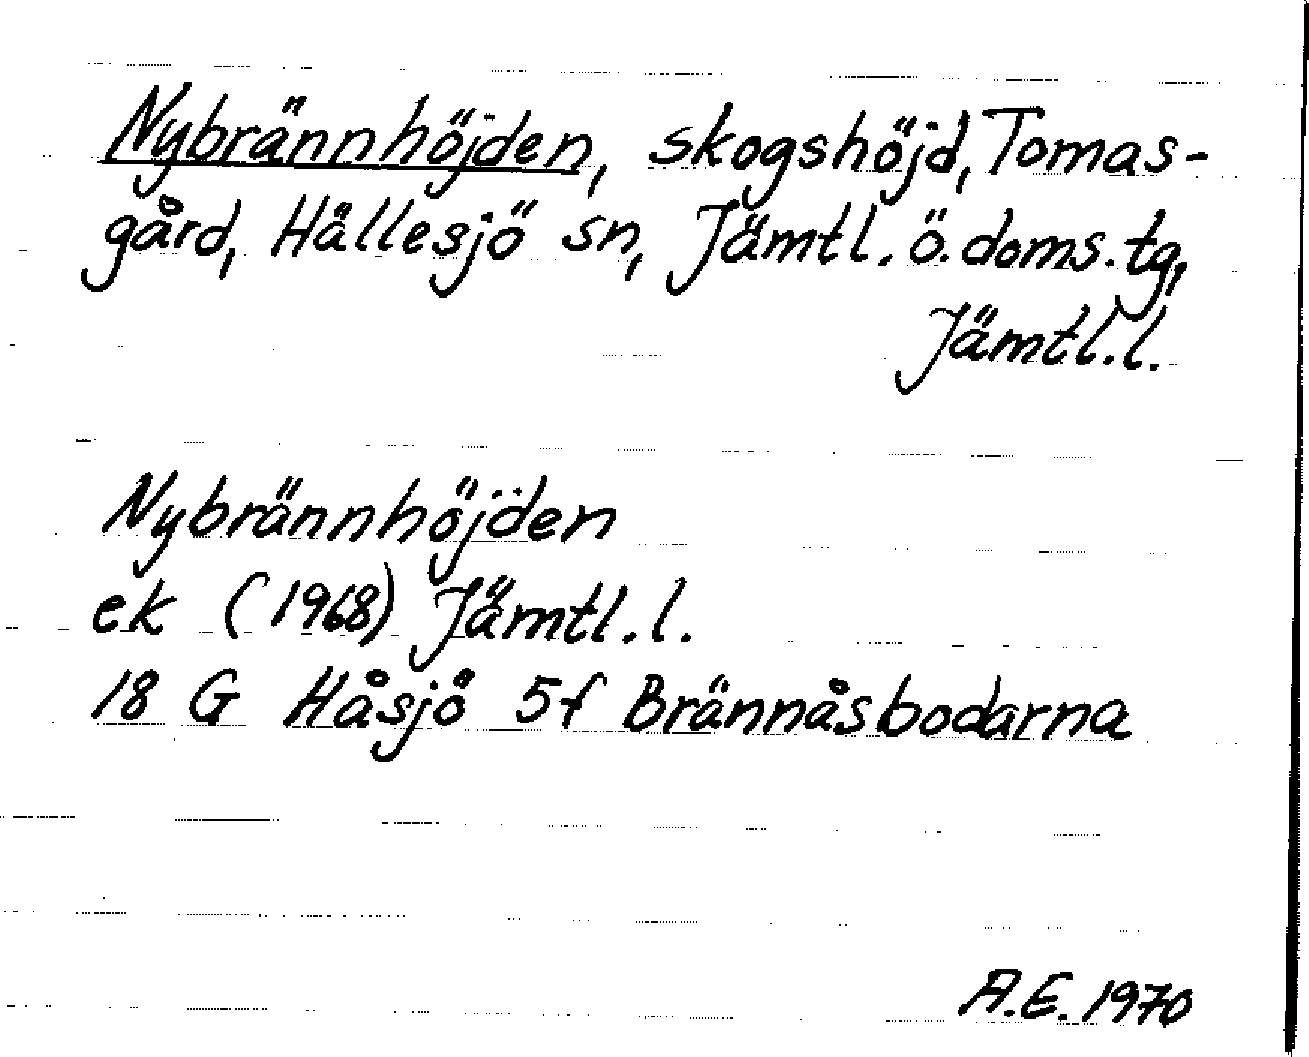 Nybrännhöjden, skogshöjd, Tomas-
gård, Hällesjö sn, Jämtl. ö. doms. tg,
Jämtl. l.
Nybrännhöjden
ek (1968) Jämtl. l.
18 G Håsjö 5f Brännåsbodarna
A.E. 1970